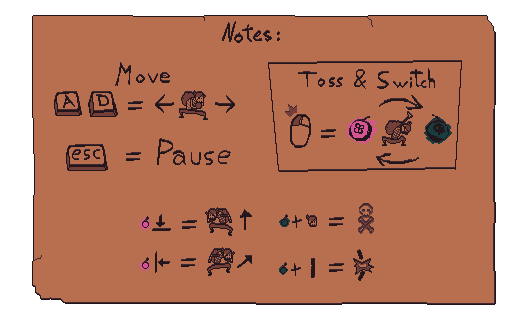 Notes:
Move
A D = ← →
esc = Pause
Toss & Switch
=
= ↑
+ =
= ↗
+ =